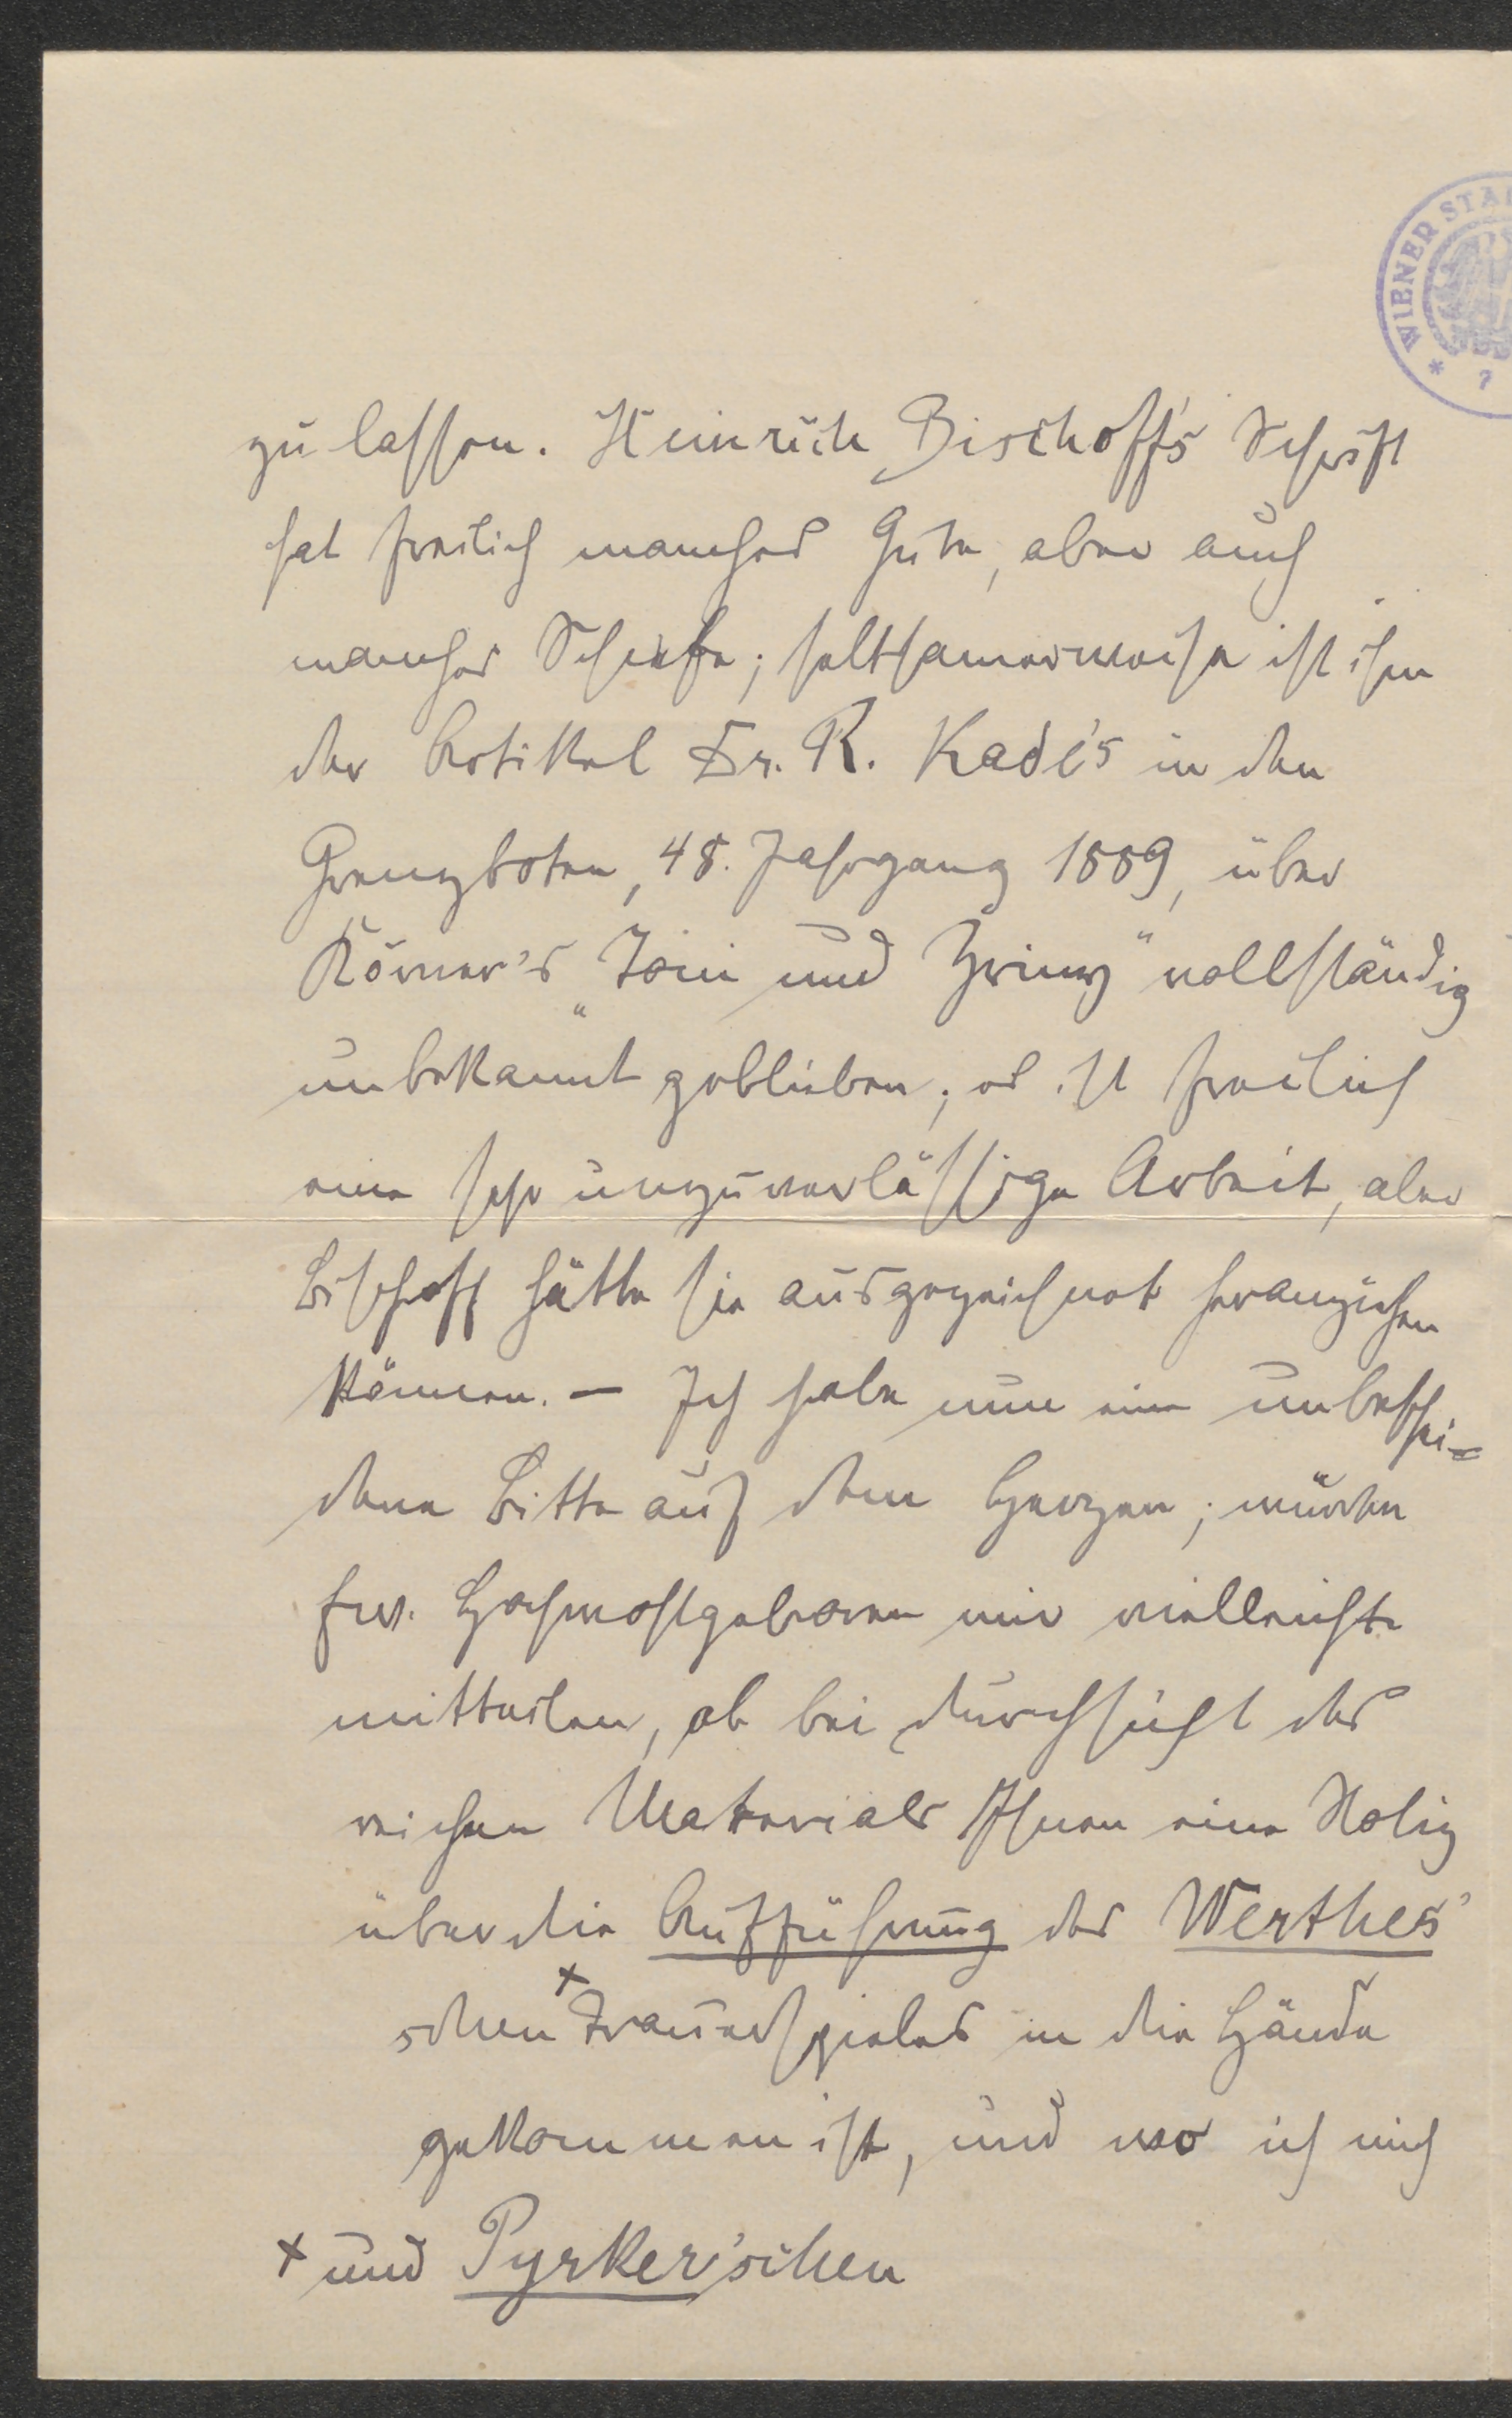 WIENER STA
* 7
zu lassen. Heinrich Bischoff's Schrift
hat freilich manches Gute, aber auch
manches Schiefe; seltsamerweise ist ihm
der Artikel Dr. R. Kade's in den
Grenzboten, 48. Jahrgang 1889, über
Körner's „Toni und Zriny" vollständig
unbekannt geblieben; es ist freilich
eine sehr unzuverlässige Arbeit, aber
Bischoff hätte sie ausgezeichnet heranziehen
können. – Ich habe nun eine unbeschei-
dene Bitte auf dem Herzen; würden
Euer. Hochwohlgeboren mir vielleicht
mitteilen, ob bei Durchsicht des
reichen Materials Ihnen eine Notiz
über die Aufführung des Werthes'
schen + Trauerspieles in die Hände
gekommen ist, und wo ich mich
+ und Pyrker'schen